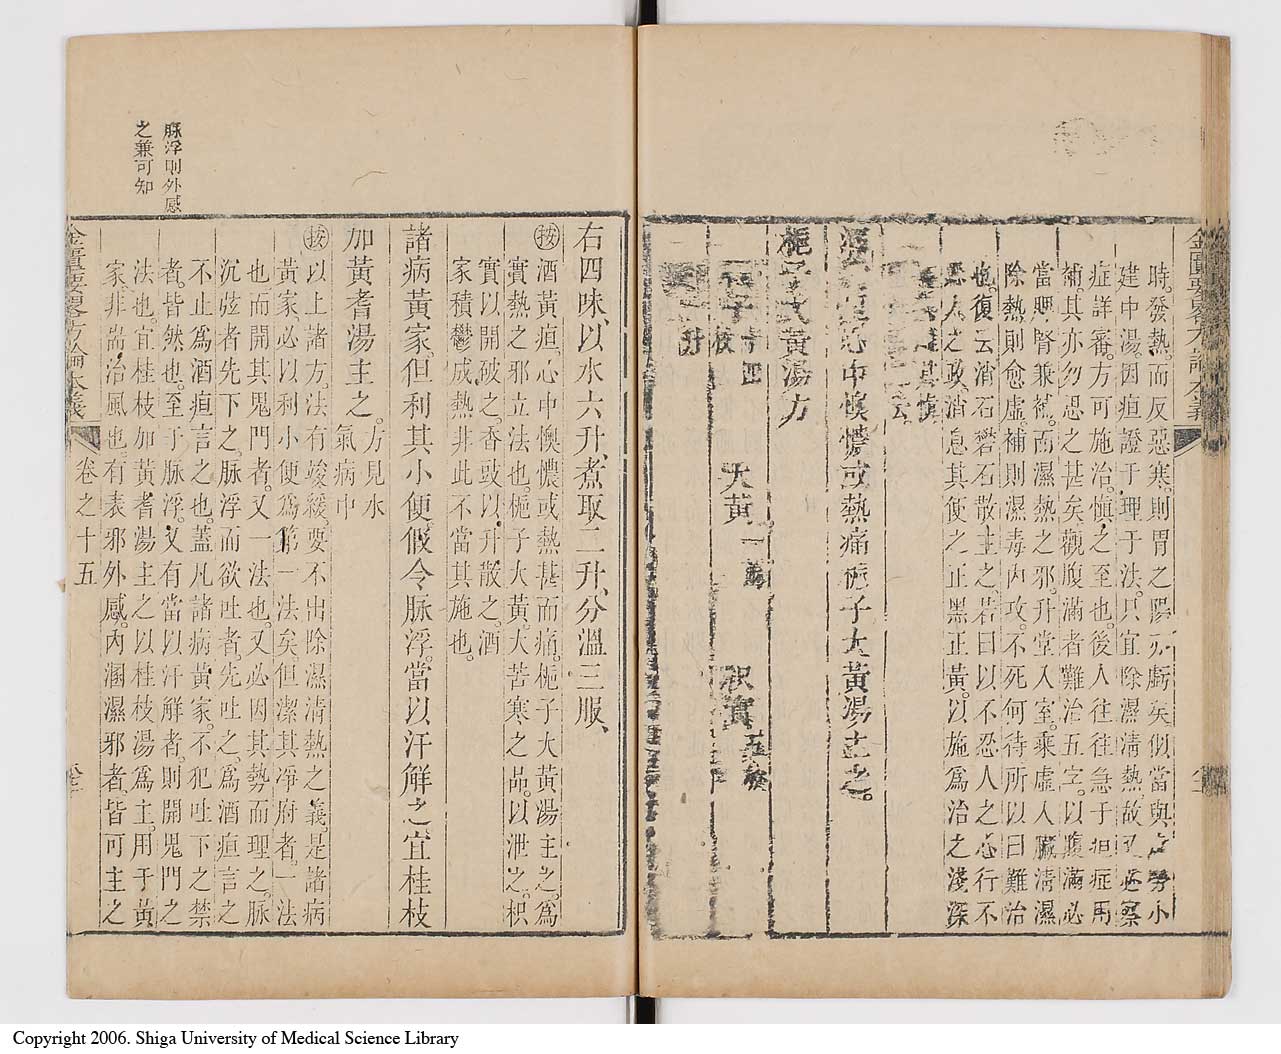 時發熱而反惡寒則胃之陽亦虧矣似當與虛勞小
建中湯因疸證于理于法只宜除濕清熱故又必察
症詳審方可施治慎之至也後人往往急于疸症馬
補其亦勿思之甚矣觀腹滿者難治五字以腹滿必
當脾腎兼補而濕熱之邪升堂入室乘虛人臟清濕
除熱則愈虛補則濕毒內攻不死何待所以曰難治
也復云消石礬石散主之若曰以不忍人之心行不
忍人之政消息其便之正黑正黃以施爲治之淺深
酒黃疸心中懊憹或熱痛梔子大黃湯主之
梔子大黃湯方
梔子十四枚 大黃一兩 枳實五枚
升
右四味以水六升煮取二升分溫三服
按酒黃疸心中懊憹或熱甚而痛梔子大黃湯主之爲
實熱之邪立法也梔子大黃大苦寒之品以泄之枳
實以開破之香豉以升散之酒
家積鬱成熱非此不當其施也
諸病黃家但利其小便假令脉浮當以汗解之宜桂枝
加黃耆湯主之方見水氣病中
按以上諸方法有竣緩要不出除濕清熱之義是諸病
黃家必以利小便爲第一法矣但潔其淨府者一法
也而開其鬼門者又一法也又必因其勢而理之脉
沉弦者先下之脉浮而欲吐者先吐之爲酒疸言之
不止爲酒疸言之也蓋凡諸病黃家不犯吐下之禁
者皆然也至于脉浮又有當以汗解者則開鬼門之
法也宜桂枝加黃耆湯主之以桂枝湯爲主用于黃
家非耑治風也有表邪外感內溷濕邪者皆可主之
金匱要畧方論本義
卷之十五
脉浮則外感
之兼可知
Copyright 2006. Shiga University of Medical Science Library